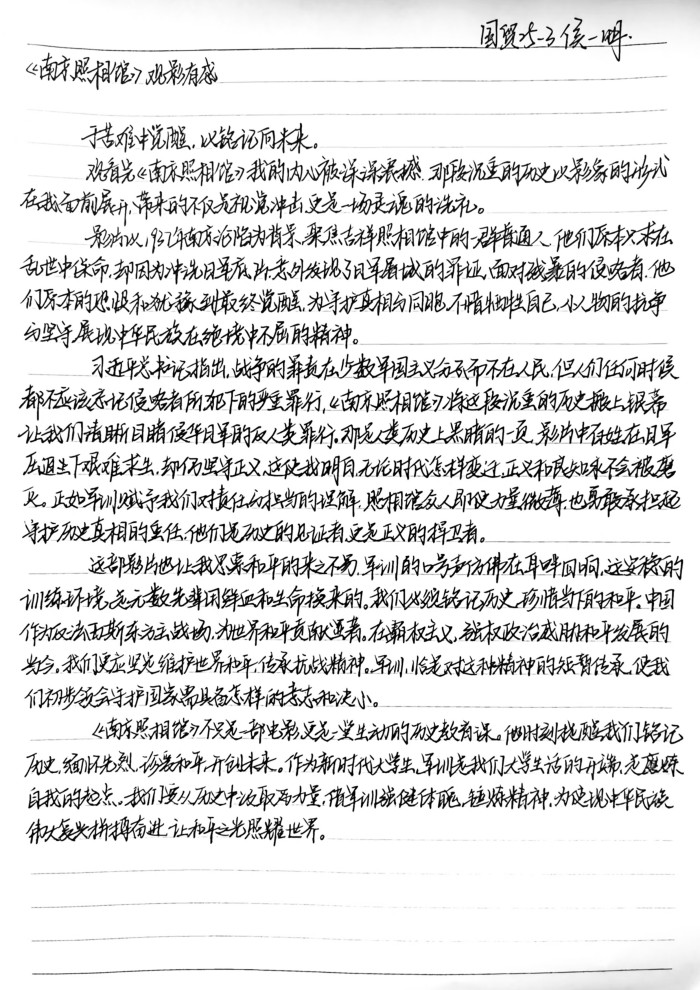 国贸25-3 侯一明.
《南京照相馆》观影有感
于苦难中觉醒,以铭记向未来。
观看完《南京照相馆》我的内心被深深震撼,那段沉重的历史以影象的形式
在我面前展开,带来的不仅是视觉冲击,更是一场灵魂的洗礼。
影片以1937年南京沦陷为背景,聚焦吉祥照相馆中的一群普通人,他们原本只求在
乱世中保命,却因为冲洗日军底片,意外发现了日军屠城的罪证,面对残暴的侵略者,他
们原本的恐惧和犹豫到最终觉醒,为守护真相与同胞,不惜牺牲自己,小人物的抗争
与坚守,展现中华民族在绝境中不屈的精神。
习近平总书记指出,战争的罪责在少数军国主义分子而不在人民,但人们任何时候
都不应该忘记侵略者所犯下的严重罪行,《南京照相馆》将这段沉重的历史搬上银幕
让我们清晰目睹侵华日军的反人类罪行。那是人类历史上黑暗的一页,影片中百姓在日军
压迫下艰难求生,却仍坚守正义,这使我明白,无论时代怎样变迁,正义和良知永不会被磨
灭。正如军训赋予我们对责任与担当的理解,照相馆众人即使力量微薄,也勇敢承担起
守护历史真相的重任,他们是历史的见证者,更是正义的捍卫者。
这部影片也让我思索和平的来之不易,军训的口号声仿佛在耳畔回响,这安稳的
训练环境,是无数先辈用鲜血和生命换来的。我们必须铭记历史,珍惜当下的和平。中国
作为反法西斯东方主战场,为世界和平贡献卓著。在霸权主义,强权政治威胁和平发展的
当今。我们更应坚定维护世界和平,传承抗战精神。军训,恰是对这种精神的短暂传承,使我
们初步领会守护国家需具备怎样的意志和决心。
《南京照相馆》不只是一部电影,更是一堂生动的历史教育课。他时刻提醒我们铭记
历史,缅怀先烈,珍爱和平,开创未来。作为新时代大学生,军训是我们大学生活的开端,是磨炼
自我的起点。我们要从历史中汲取力量,借军训强健体魄,锤炼精神,为实现中华民族
伟大复兴拼搏奋进,让和平之光照耀世界。